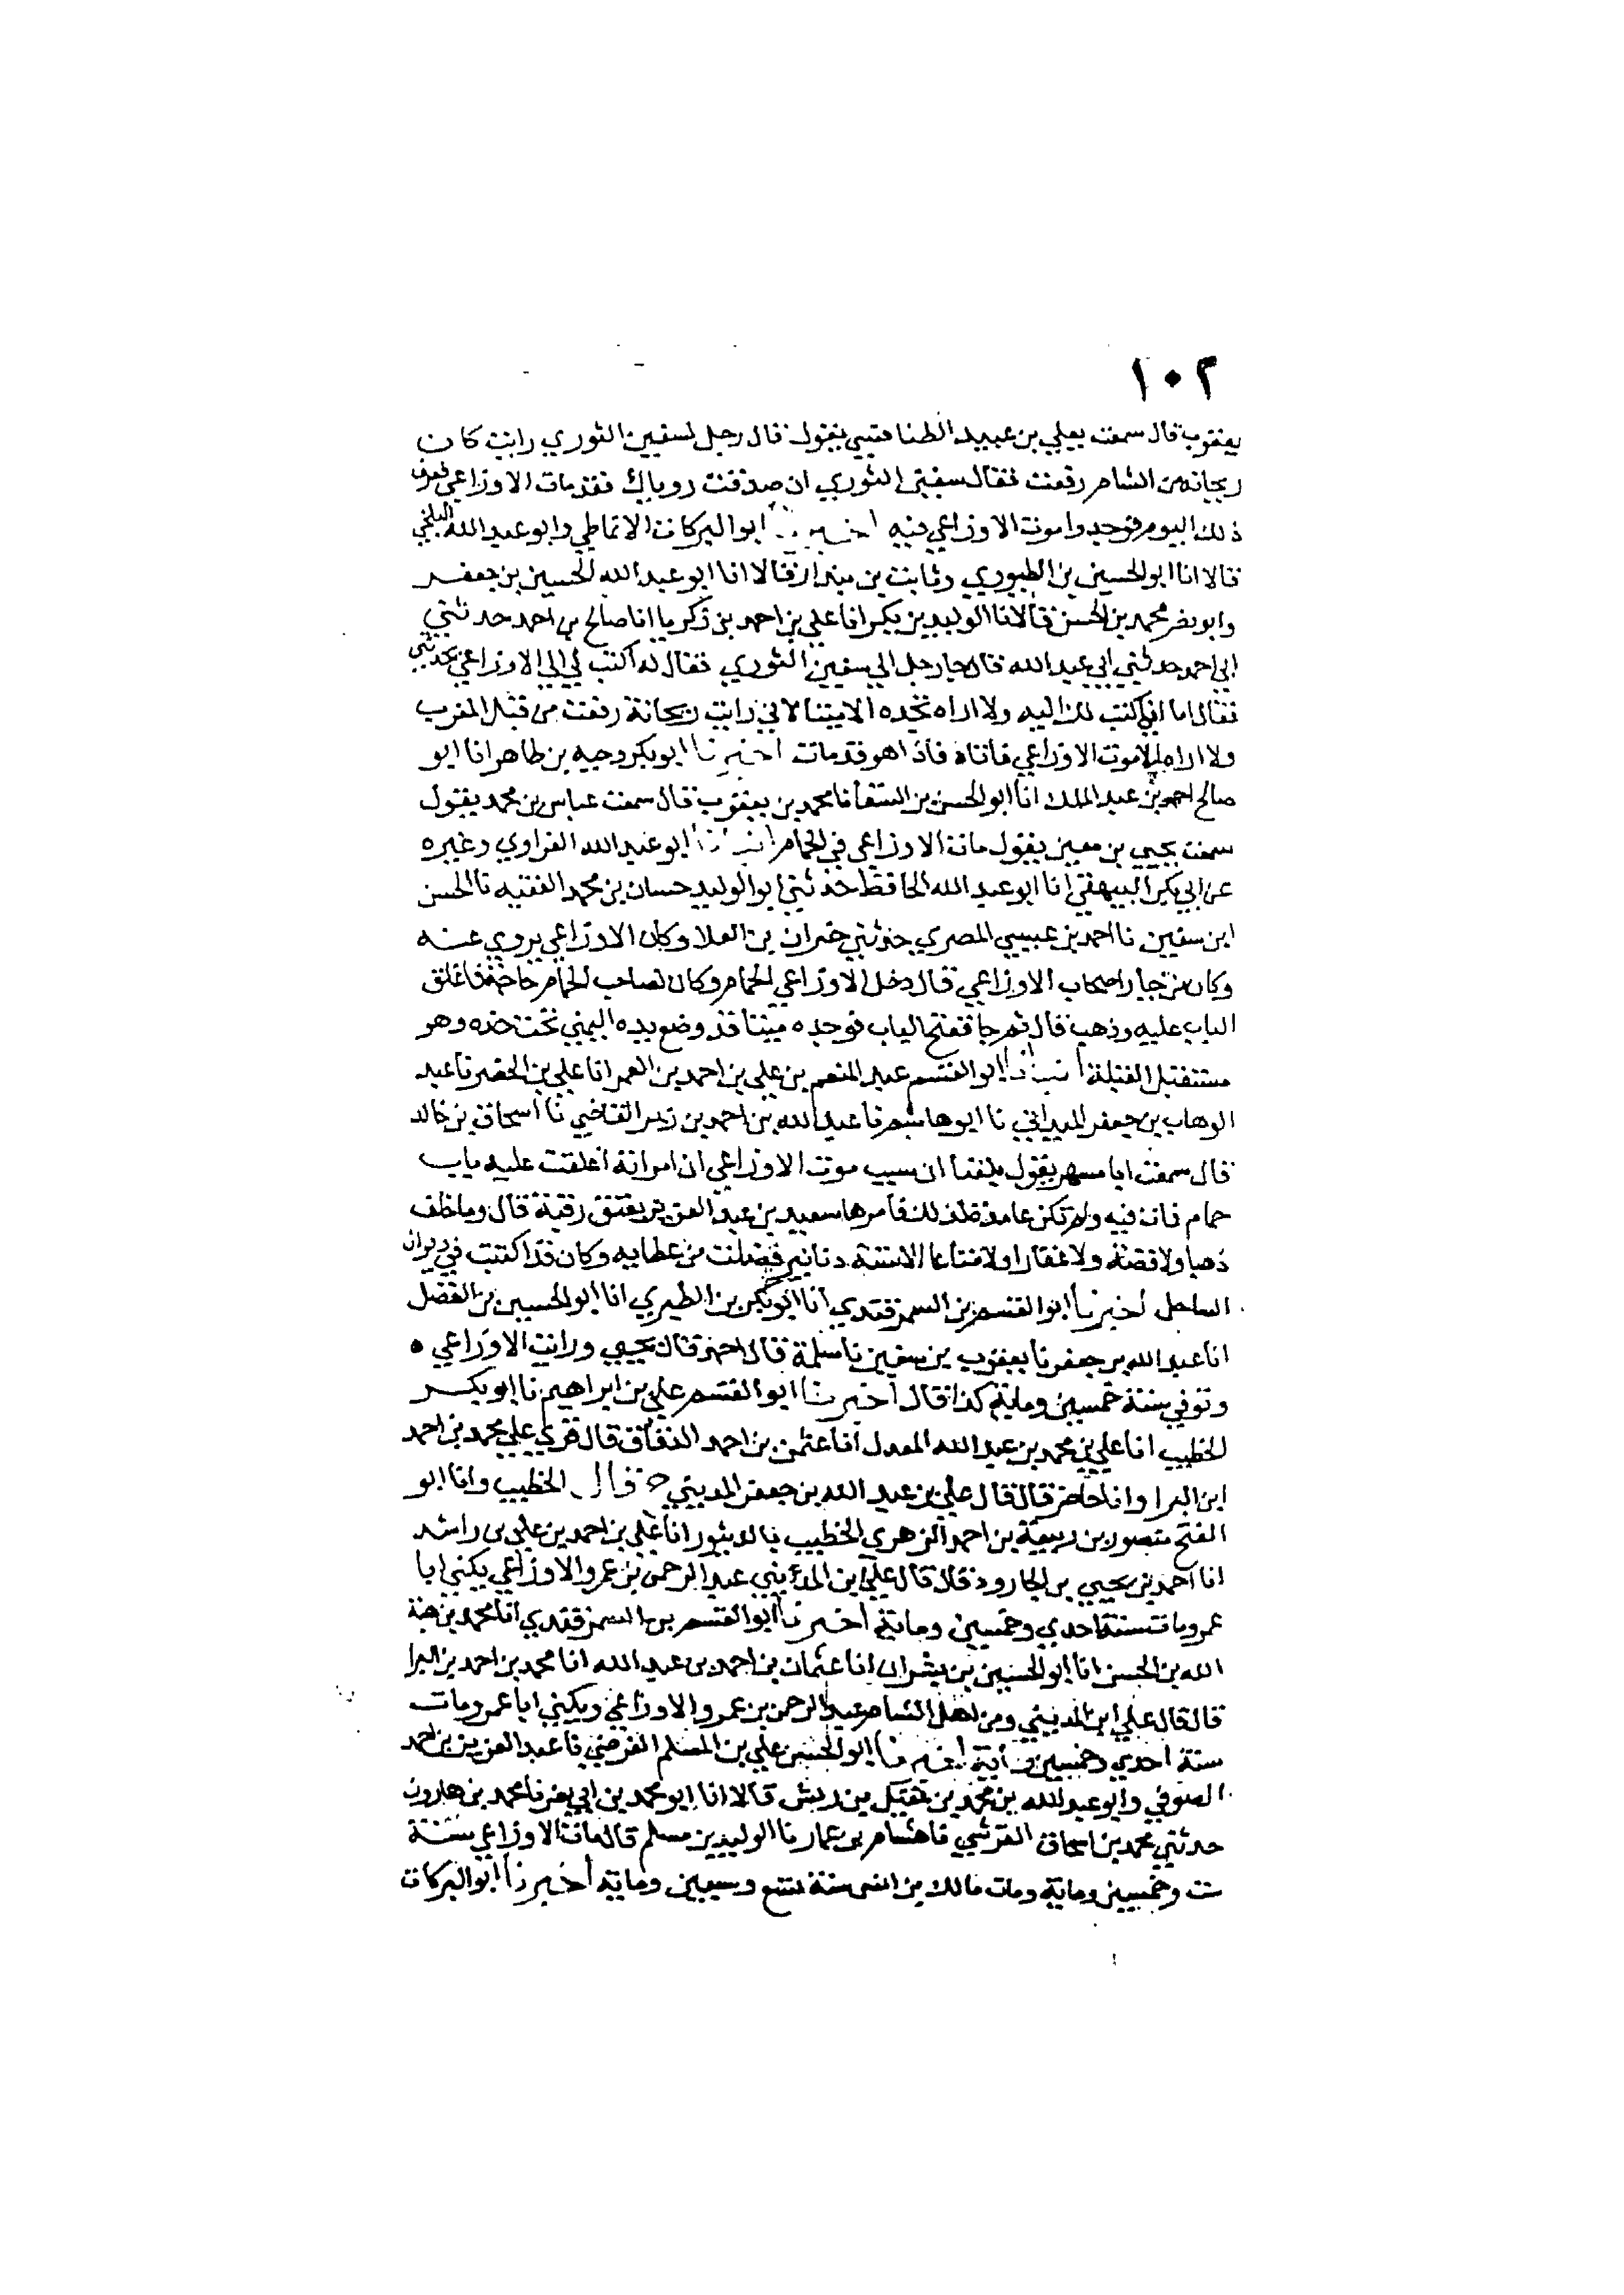 ١٠٢
يعقوب قال سمعت يعلي بن عبيد الطنافسي يقول قال رجل لسفين الثوري رايت كان
ريحانة من الشام رفعت فقال سفين الثوري ان صدقت روياك فقد مات الاوزاعي فعرف
ذلك اليوم فوجدوا موت الاوزاعي فيه اخبرنا ابو البركات الانماطي وابو عبد الله البلخي
قالا انا ابو الحسين بن الطيوري وثابت بن بندار قالا انا ابو عبد الله الحسين بن جعفر
وابو نصر محمد بن الحسن قالا انا الوليد بن بكر انا علي بن احمد بن زكريا انا صالح بن احمد حدثني
ابي احمد حدثني ابي عبد الله قال جا رجل الي سفين الثوري فقال له اكتب لي الي الاوزاعي يحدثني
فقال اما اني اكتب لك اليه ولا اراه تجده الا ميتا لاني رايت ريحانة رفعت من قبل المغرب
ولا اراه الا موت الاوزاعي فاتاه فاذا هو قد مات اخبرنا ابو بكر وجيه بن طاهر انا ابو
صالح احمد بن عبد الملك انا ابو الحسن بن السقا نا محمد بن يعقوب قال سمعت عباس بن محمد يقول
سمعت يحيي بن معين يقول مات الاوزاعي في الحمام ابو عبد الله الفراوي وغيره
عن ابي بكر البيهقي انا ابو عبد الله الحافظ حدثني ابو الوليد حسان بن محمد الفقيه نا الحسن
ابن سفين نا احمد بن عيسي المصري حدثني خيران بن العلا وكان الاوزاعي يروي عنه
وكان من خيار اصحاب الاوزاعي قال دخل الاوزاعي الحمام وكان لصاحب الحمام حاجة فاغلق
الباب عليه وذهب قال ثم جا ففتح الباب فوجده ميتا قد وضع يده اليمني تحت خده وهو
مستقبل القبلة ابو القسم عبد المنعم بن علي بن احمد بن الغمر انا علي بن الخضر نا عبد
الوهاب بن جعفر الميداني نا ابو هاشم نا عبد الله بن احمد بن زبر القاضي نا اسحاق بن خالد
قال سمعت ابا مسهر يقول بلغنا ان سبب موت الاوزاعي ان امراته اغلقت عليه باب
حمام فمات فيه ولم تكن عامدة لذلك فامرها سعيد بن عبد العزيز بعتق رقبة قال وما خلف
ذهبا ولا فضة ولا عقارا ولا متاعا الا ستة دنانير فضلت من عطايه وكان قد اكتتب في ديوان
الساحل اخبرنا ابو القسم بن السمرقندي انا ابو بكر بن الطبري انا ابو الحسين بن الفضل
انا عبد الله بن جعفر نا يعقوب بن سفين نا سلمة قال احمد قال يحيي ورايت الاوزاعي ه
وتوفي سنة خمسين وماية كذا قال اخبرنا ابو القسم علي بن ابراهيم نا ابو بكر
الخطيب انا علي بن محمد بن عبد الله المعدل انا عثمن بن احمد الدقاق قال قري علي محمد بن احمد
ابن البرا وانا حاضر قال قال علي بن عبد الله بن جعفر المديني ح قال الخطيب وانا ابو
الفتح منصور بن ربيعة بن احمد الزهري الخطيب بالدينور انا علي بن احمد بن علي بن راشد
انا احمد بن يحيي بن الجارود قال قال علي ابن المديني عبد الرحمن بن عمرو الاوزاعي يكني ابا
عمرو مات سنة احدي وخمسين وماية اخبرنا ابو القسم بن السمرقندي انا محمد بن هبة
الله بن الحسن انا ابو الحسين بن بشران انا عثمان بن احمد بن عبد الله انا محمد بن احمد بن البرا
قال قال علي ابن المديني ومن اهل الشام عبد الرحمن بن عمرو الاوزاعي ويكني ابا عمرو مات
سنة احدي وخمسين وماية اخبرنا ابو الحسن علي بن المسلم الفرضي نا عبد العزيز بن احمد
الصوفي وابو عبد الله بن محمد بن عقيل بن ريش قالا انا ابو محمد بن ابي نصر نا محمد بن هارون
حدثني محمد بن اسحاق القرشي نا هشام بن عمار نا الوليد بن مسلم قال مات الاوزاعي سنة
ست وخمسين وماية ومات مالك بن انس سنة تسع وسبعين وماية اخبرنا ابو البركات